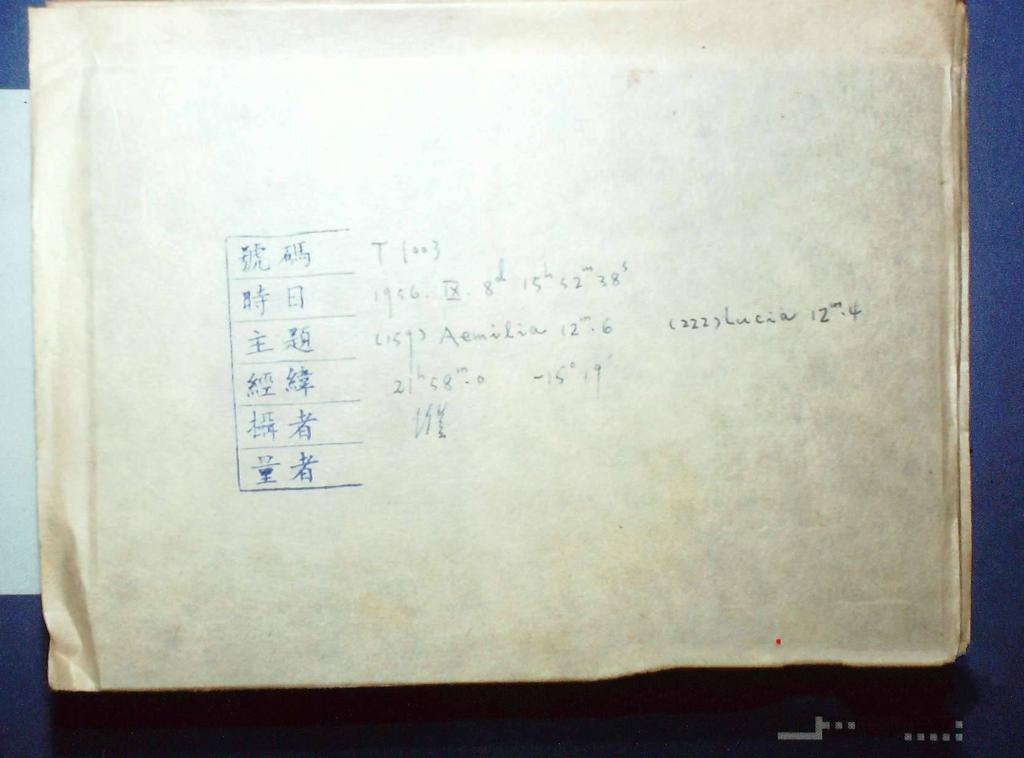 號碼 T 1003
時日 1956. IX. 8d 15h 52m 38s
主題 (159) Aemilia 12m.6 (222) Lucia 12m.4
經緯 21h 58m.0 -15° 19'
攝者
量者